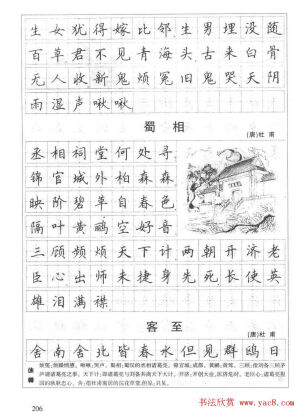 生女犹得嫁比邻生男埋没随
百草君不见青海头古来白骨
无人收新鬼烦冤旧鬼哭天阴
雨湿声啾啾
蜀相
(唐)杜甫
丞相祠堂何处寻
锦官城外柏森森
映阶碧草自春色
隔叶黄鹂空好音
三顾频烦天下计两朝开济老
臣心出师未捷身先死长使英
雄泪满襟
客至
(唐)杜甫
舍南舍北皆春水但见群鸥日
注释
206
书法欣赏
www.yac8.com